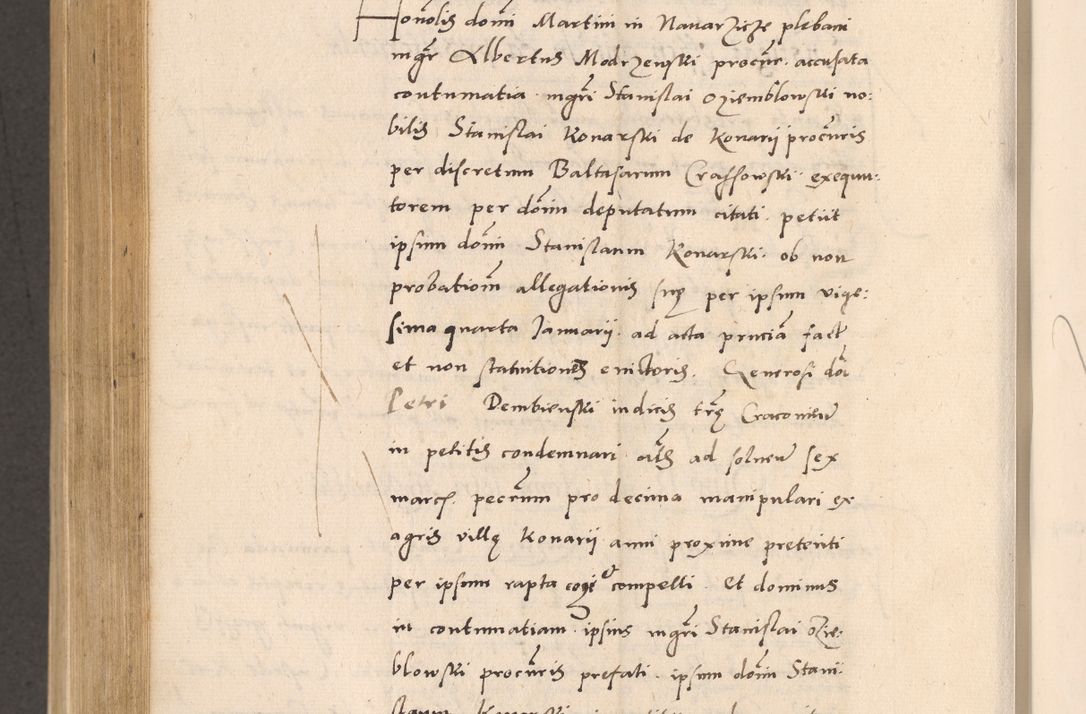 Honolis domi Martini in Navarzicze plebani
mgr Albertus Modrzewski procur. accusata
contumatia mgri Stanislai Oziemblowski no:
bilis Stanislai Konarski de Konarii procuris
per discretum Baltasarum Crassowski exequu:
torem per domi deputatum citati. petiit
ipsum domi Stanislaum Konarski. ob non
probationem allegationis suę per ipsum vige:
sima quarta Januarii. ad acta prnciam fact
et non statuitionis evictoris. Generosi doi
Petri Dembienski iudicis trę Cracovien
in petitis condemnari. ad solven sex
marc. pecrum pro decima manipulari ex
agris villę Konarii anni proxime preteriti
per ipsum rapta cogi et compelli. Et dominus
in contumatiam ipsius mgri Stanislai Ozie:
blowski procuris prefati. ipsum domi Stani:
slaum Konarski in